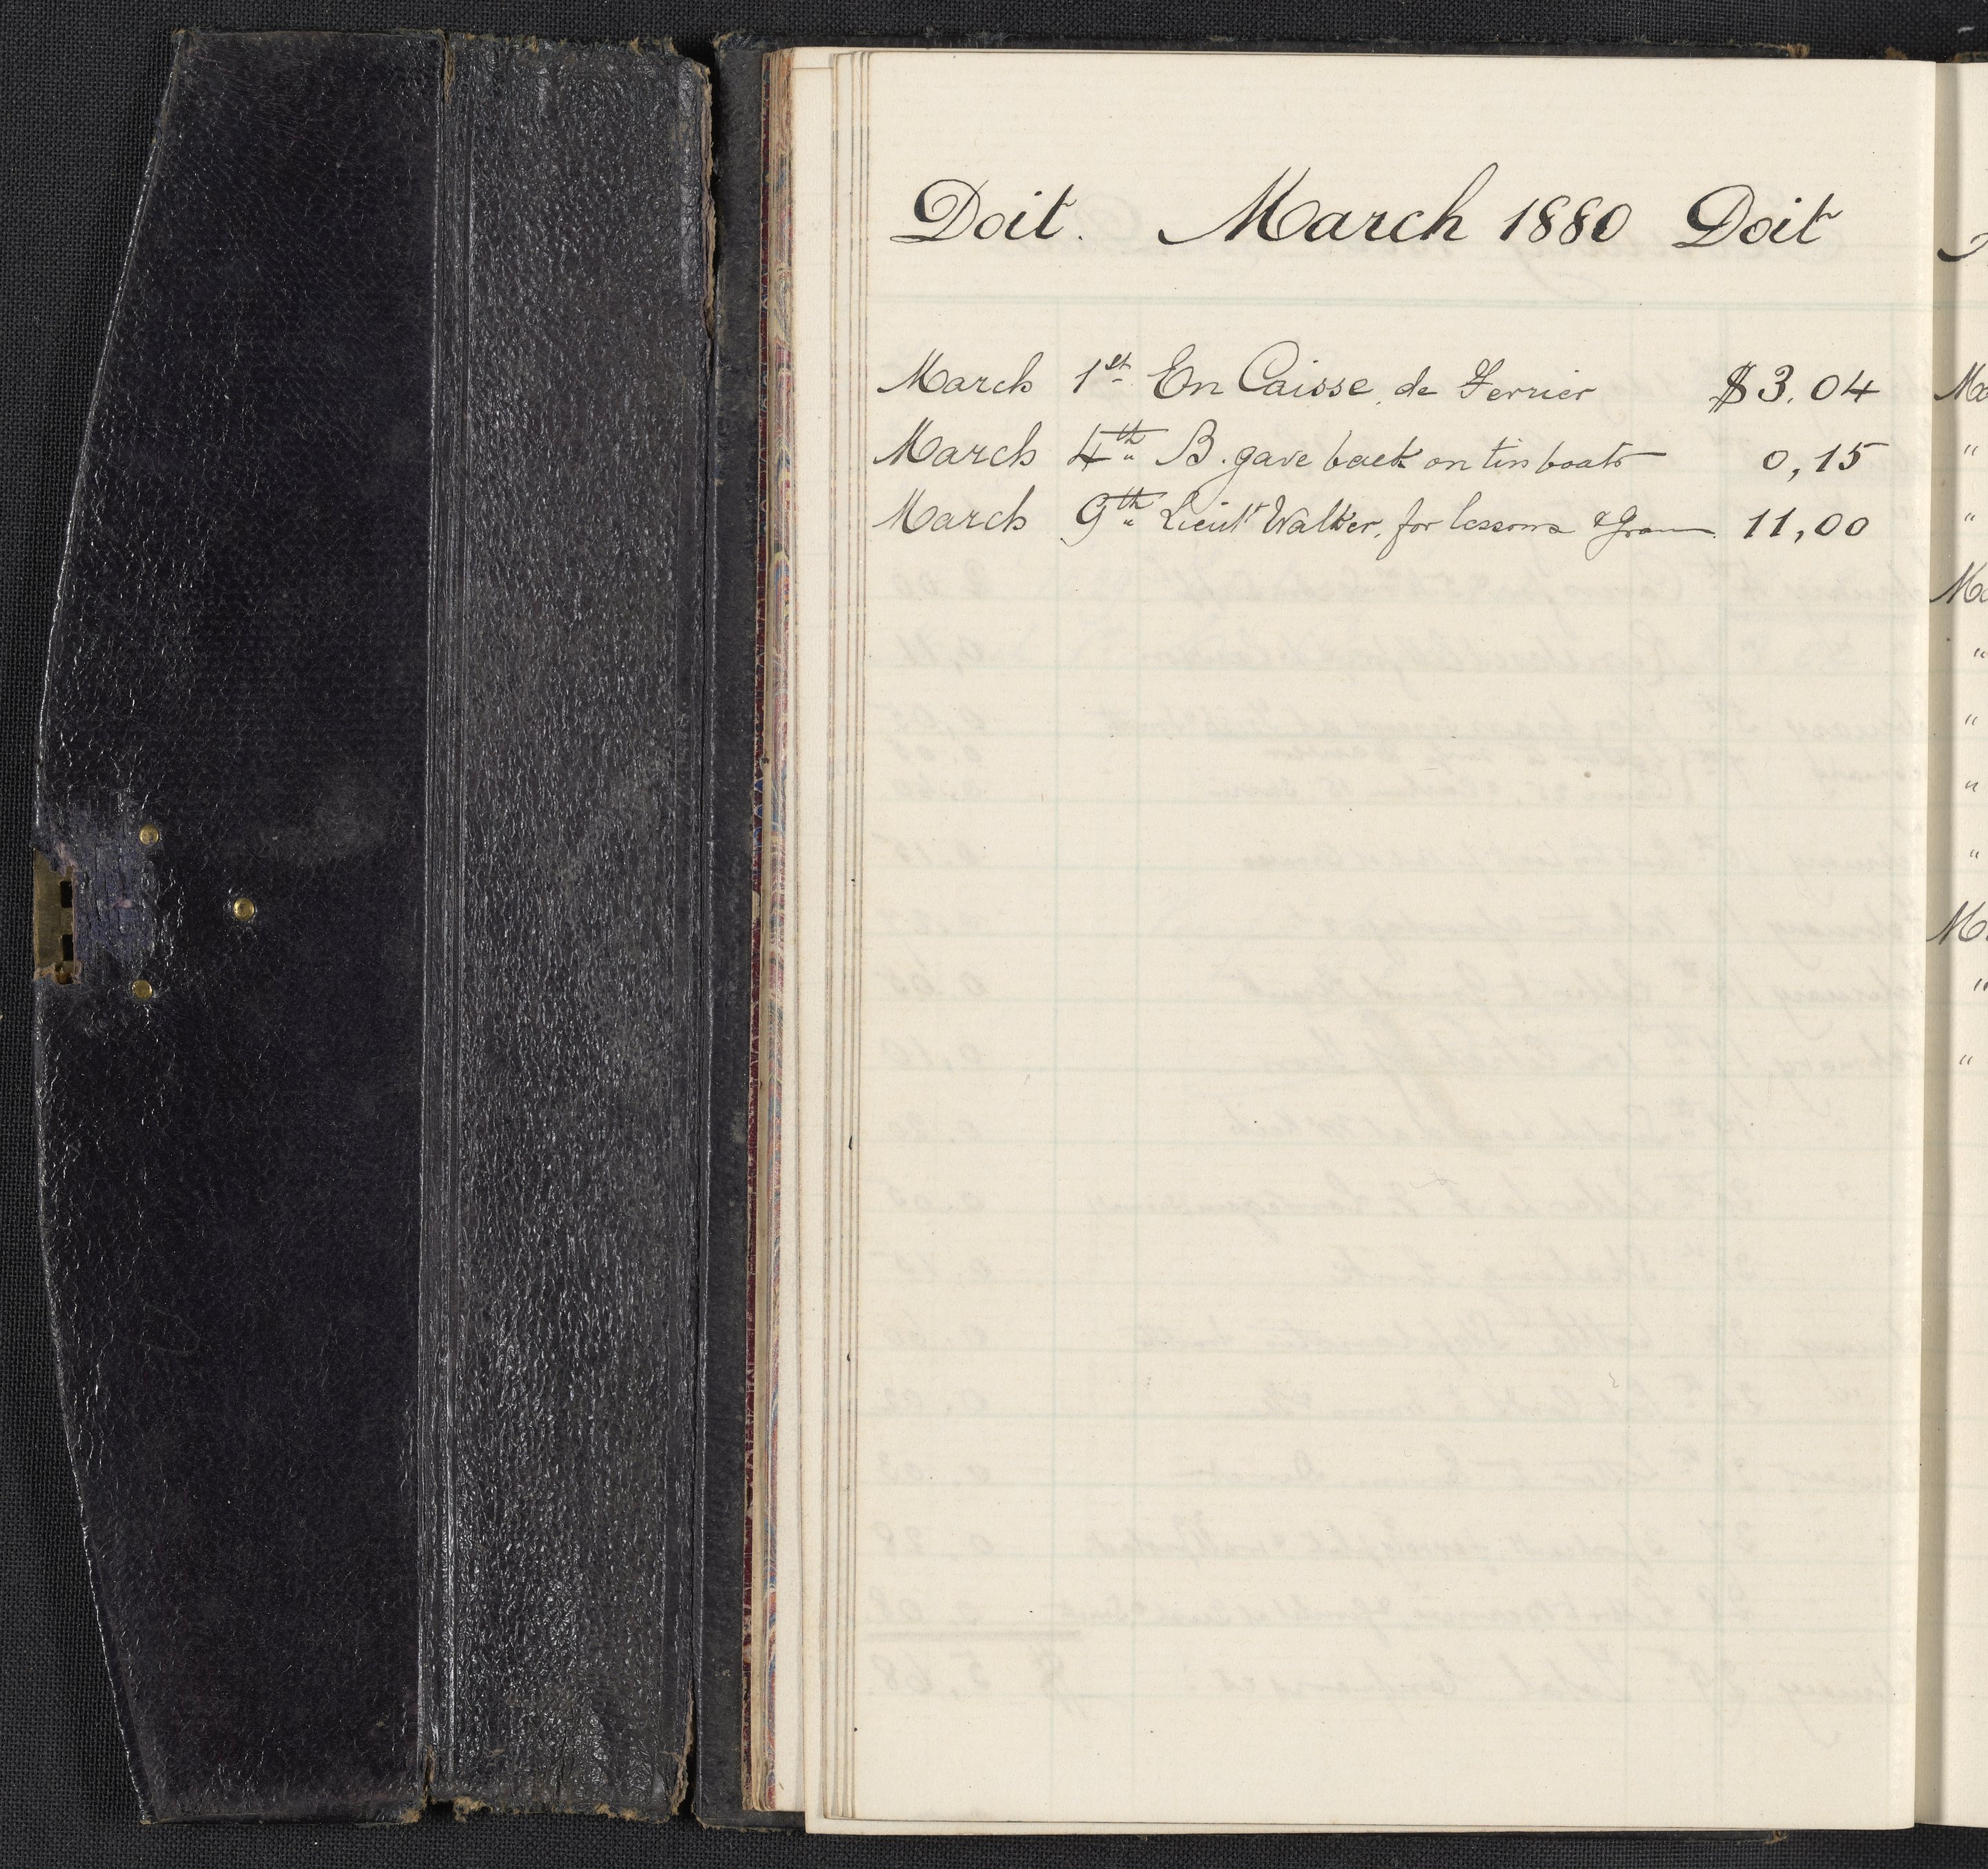 Doit. March 1880 Doit
March 1st En Caisse, de Fevrier $3.04
March 4th B. gave back on tin boats 0,15
March 9th Lieut Walker, for lessons 11,00